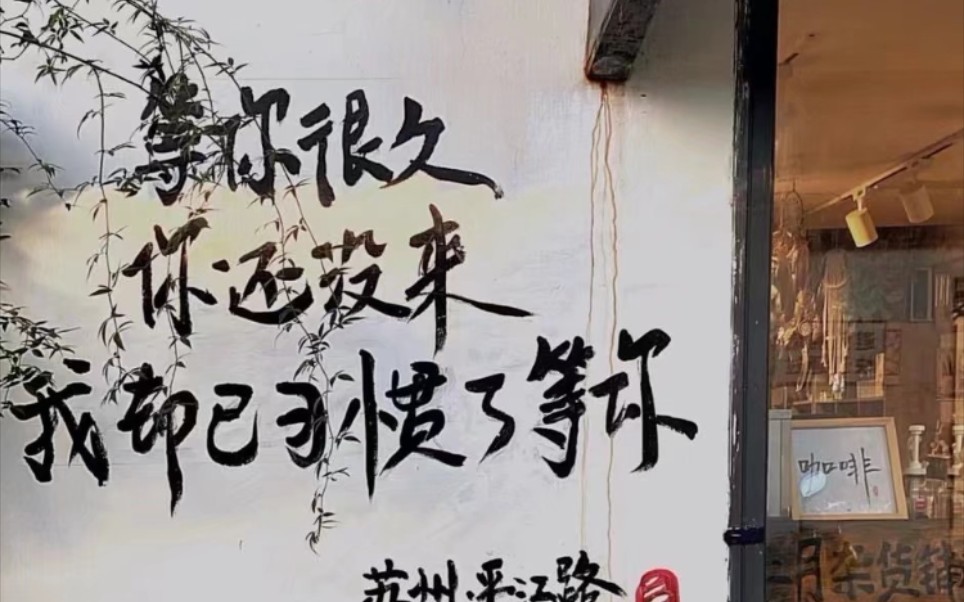 等你很久
你还没来
我却已习惯了等你
苏州平江路
咖啡
二月杂货铺